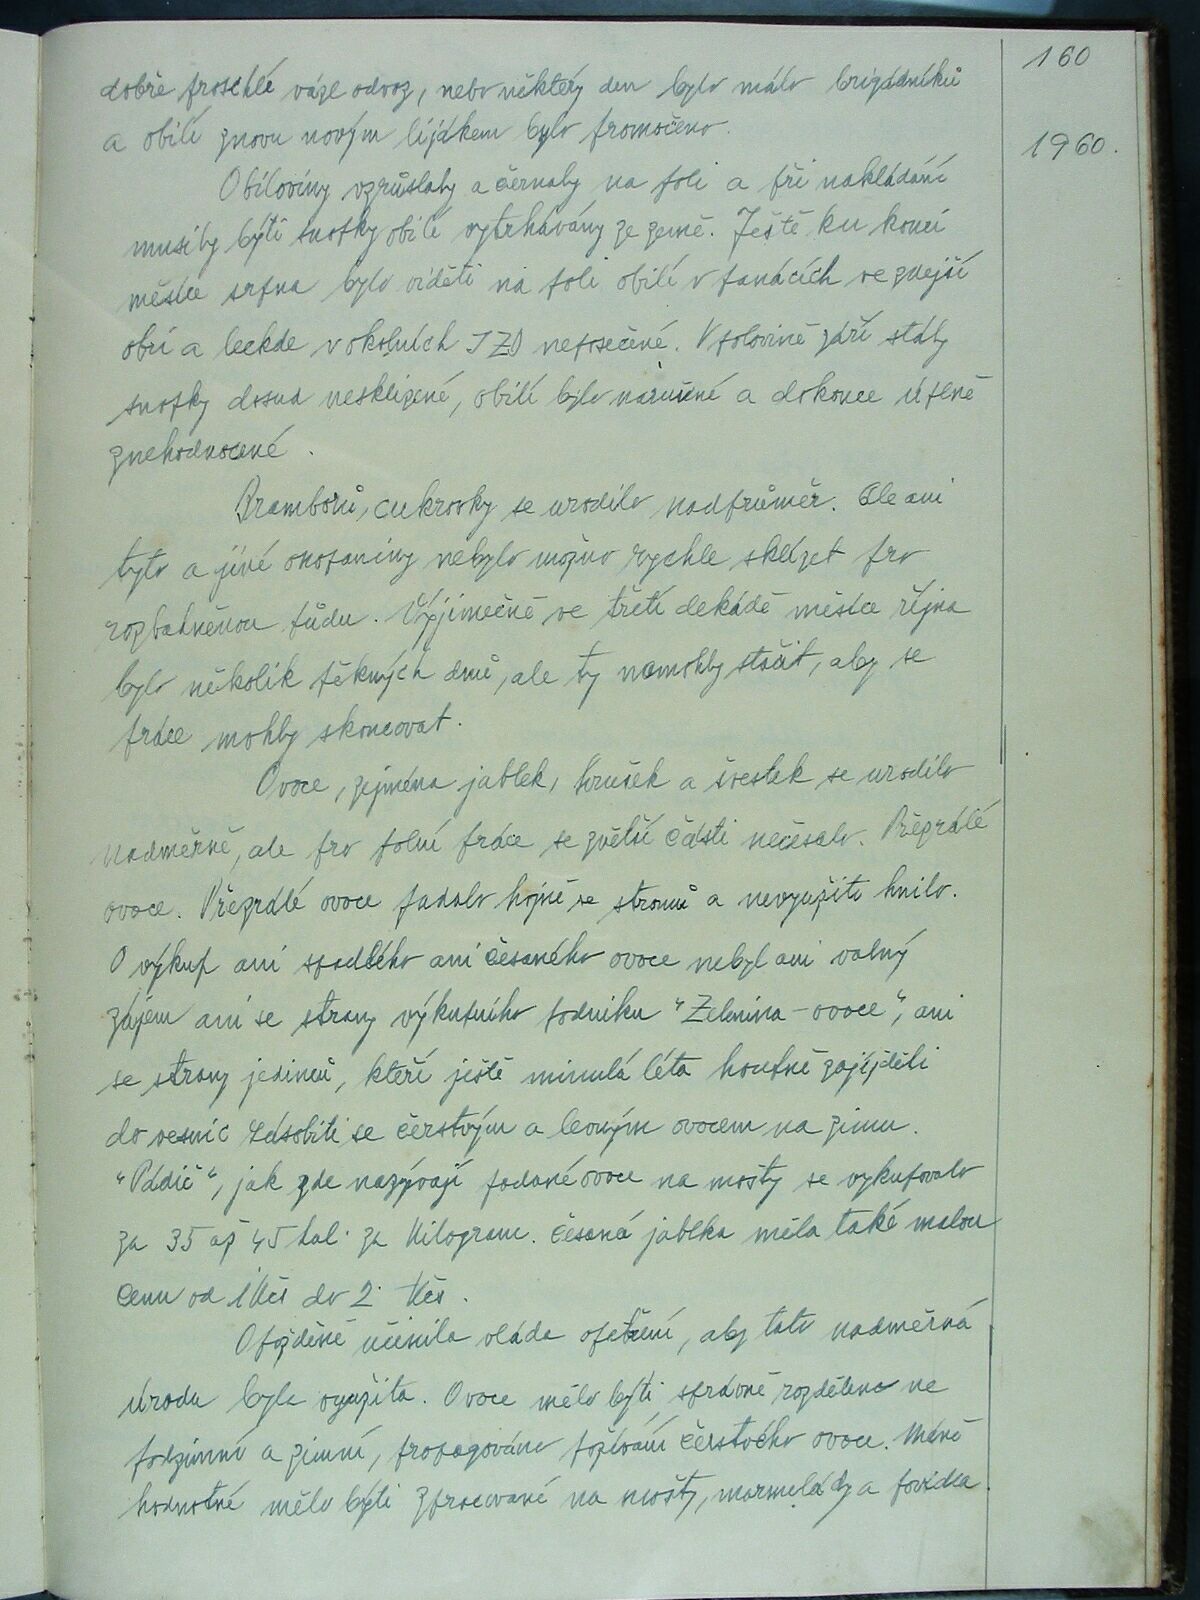 160
1960.
dobře proschlé vázl odvoz, nebo některý den bylo málo brigádníků
a obilí znovu novým lijákem bylo promočeno.
Obiloviny vzrůstaly a černaly na poli a při nakládání
musily býti snopky obilí vytrhávány ze země. Ještě ku konci
měsíce srpna bylo viděti na poli obilí v panácích ve zdejší
obci a leckde v okolních JZD neposečené. V polovině září stály
snopky dosud nesklizené, obilí bylo narušené a dokonce úplně
znehodnocené.
Bramborů, cukrovky se urodilo nadprůměr. Ale ani
tyto a jiné okopaniny nebylo možno rychle sklízet pro
rozbahněnou půdu. Výjimečně ve třetí dekádě měsíce října
bylo několik pěkných dnů, ale ty nemohly stačit, aby se
práce mohly skoncovat.
Ovoce, zejména jablek, hrušek a švestek se urodilo
nadměrně, ale pro polní práce se zvětší části nečesalo. Přezrálé
ovoce. Přezrálé ovoce padalo hojně se stromů a nevyužito hnilo.
O výkup ani spadlého ani česaného ovoce nebyl ani valný
zájem ani se strany výkupního podniku "Zelenina - ovoce", ani
se strany jedinců, kteří ještě minulá léta houfně zajížděli
do vesnic zásobiti se čerstvým a levným ovocem na zimu.
"Pádič", jak zde nazývají padané ovoce na mošty se vykupovalo
za 35 až 45 hal. za kilogram. Česaná jablka měla také malou
cenu od 1 Kčs do 2 Kčs.
Opožděně učinila vláda opatření, aby tato nadměrná
úroda byla využita. Ovoce mělo býti správně rozděleno na
podzimní a zimní, propagováno požívání čerstvého ovoce. Méně
hodnotné mělo býti zpracované na mošty, marmelády a povidla.